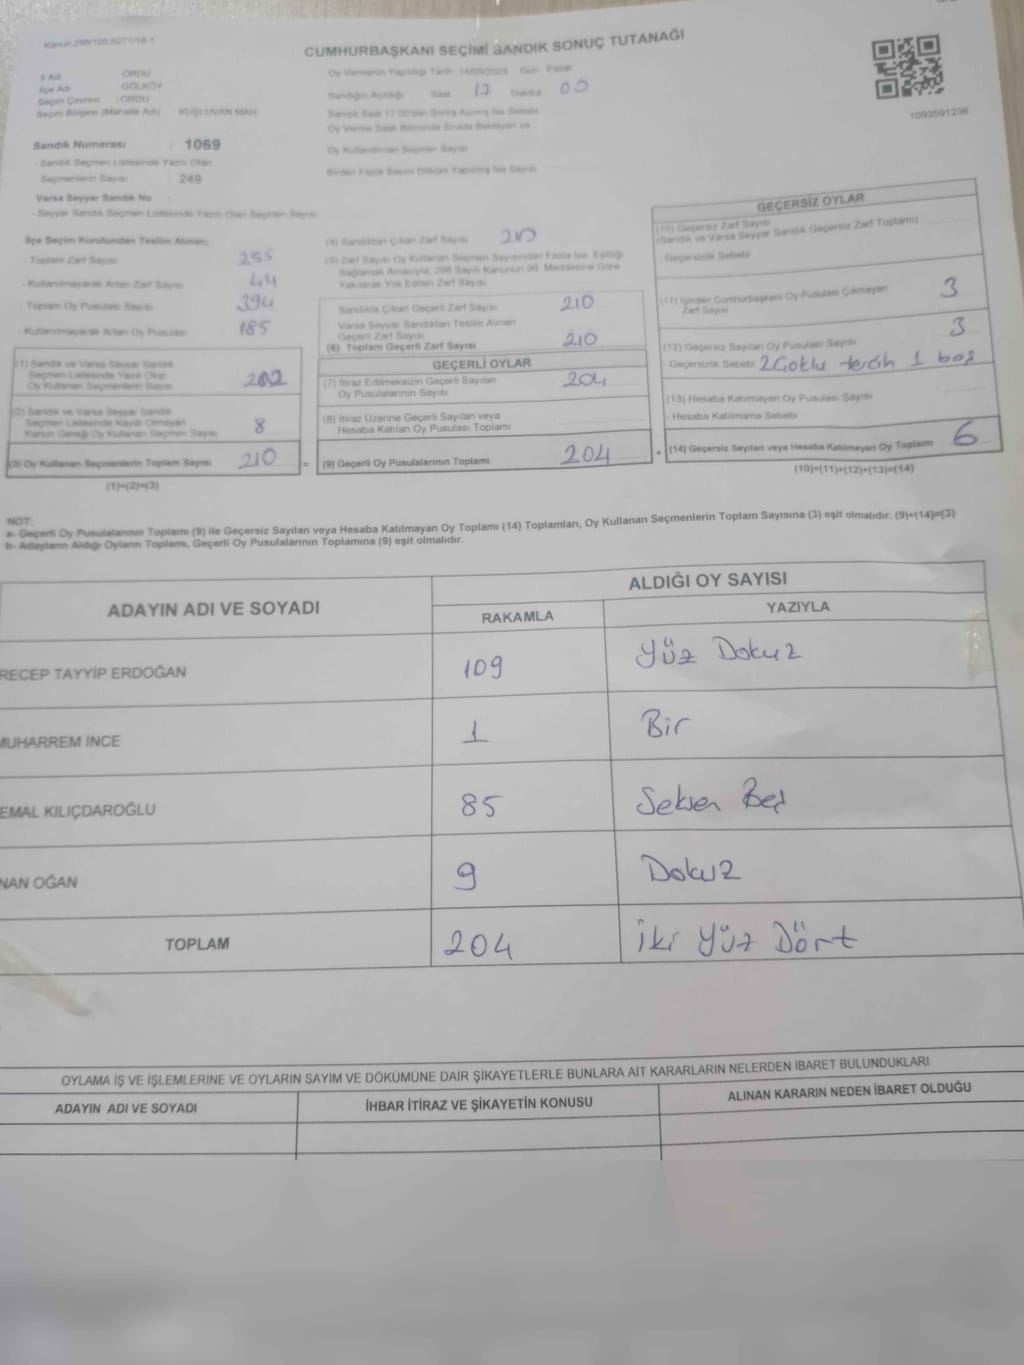 Kanun 298/105,6271/18-1
CUMHURBAŞKANI SEÇİMİ SANDIK SONUÇ TUTANAĞI
İl Adı : ORDU
İlçe Adı : GÖLKÖY
Seçim Çevresi : ORDU
Seçim Bölgesi (Mahalle Adı) : KUŞLUVAN MAH.
Sandık Numarası : 1069
- Sandık Seçmen Listesinde Yazılı Olan
Seçmenlerin Sayısı : 249
Varsa Seyyar Sandık No :
- Seyyar Sandık Seçmen Listesinde Yazılı Olan Seçmen Sayısı:
Oy Vermenin Yapıldığı Tarih: 14/05/2023 Gün: Pazar
Sandığın Açıldığı Saat 17 Dakika 00
Sandık Saat 17:00'den Sonra Açılmış İse Sebebi
Oy Verme Saati Bitiminde Sırada Bekleyen ve
Oy Kullandırılan Seçmen Sayısı
Birden Fazla Sayım Döküm Yapılmış İse Sayısı
1093591236
İlçe Seçim Kurulundan Teslim Alınan;
- Toplam Zarf Sayısı 255
- Kullanılmayarak Artan Zarf Sayısı 44
- Toplam Oy Pusulası Sayısı 394
- Kullanılmayarak Artan Oy Pusulası 185
(1) Sandık ve Varsa Seyyar Sandık
Seçmen Listesinde Yazılı Olup
Oy Kullanan Seçmenlerin Sayısı 202
(2) Sandık ve Varsa Seyyar Sandık
Seçmen Listesinde Kayıtlı Olmayan
Kanun Gereği Oy Kullanan Seçmen Sayısı 8
(3) Oy Kullanan Seçmenlerin Toplam Sayısı 210
(1)+(2)=(3)
(4) Sandıktan Çıkan Zarf Sayısı 210
(5) Zarf Sayısı Oy Kullanan Seçmen Sayısından Fazla İse, Eşitliği
Sağlamak Amacıyla, 298 Sayılı Kanunun 98. Maddesine Göre
Yakılarak Yok Edilen Zarf Sayısı
Sandıkta Çıkan Geçerli Zarf Sayısı 210
Varsa Seyyar Sandıktan Teslim Alınan
Geçerli Zarf Sayısı
(6) Toplam Geçerli Zarf Sayısı 210
GEÇERLİ OYLAR
(7) İtiraz Edilmeksizin Geçerli Sayılan
Oy Pusulalarının Sayısı 204
(8) İtiraz Üzerine Geçerli Sayılan veya
Hesaba Katılan Oy Pusulası Toplamı
= (9) Geçerli Oy Pusulalarının Toplamı 204 +
GEÇERSİZ OYLAR
(10) Geçersiz Zarf Sayısı
(Sandık ve Varsa Seyyar Sandık Geçersiz Zarf Toplamı)
- Geçersizlik Sebebi
(11) İçinden Cumhurbaşkanı Oy Pusulası Çıkmayan
Zarf Sayısı 3
(12) Geçersiz Sayılan Oy Pusulası Sayısı 3
- Geçersizlik Sebebi 2 Çoklu tercih 1 boş
(13) Hesaba Katılmayan Oy Pusulası Sayısı
- Hesaba Katılmama Sebebi
(14) Geçersiz Sayılan veya Hesaba Katılmayan Oy Toplamı 6
(10)+(11)+(12)+(13)=(14)
NOT:
a- Geçerli Oy Pusulalarının Toplamı (9) ile Geçersiz Sayılan veya Hesaba Katılmayan Oy Toplamı (14) Toplamları, Oy Kullanan Seçmenlerin Toplam Sayısına (3) eşit olmalıdır. (9)+(14)=(3)
b- Adayların Aldığı Oyların Toplamı, Geçerli Oy Pusulalarının Toplamına (9) eşit olmalıdır.
ADAYIN ADI VE SOYADI
ALDIĞI OY SAYISI
RAKAMLA YAZIYLA
RECEP TAYYİP ERDOĞAN 109 Yüz Dokuz
MUHARREM İNCE 1 Bir
EMAL KILIÇDAROĞLU 85 Seksen Beş
NAN OĞAN 9 Dokuz
TOPLAM 204 İki Yüz Dört
OYLAMA İŞ VE İŞLEMLERİNE VE OYLARIN SAYIM VE DÖKÜMÜNE DAİR ŞİKAYETLERLE BUNLARA AİT KARARLARIN NELERDEN İBARET BULUNDUKLARI
ADAYIN ADI VE SOYADI İHBAR İTİRAZ VE ŞİKAYETİN KONUSU ALINAN KARARIN NEDEN İBARET OLDUĞU